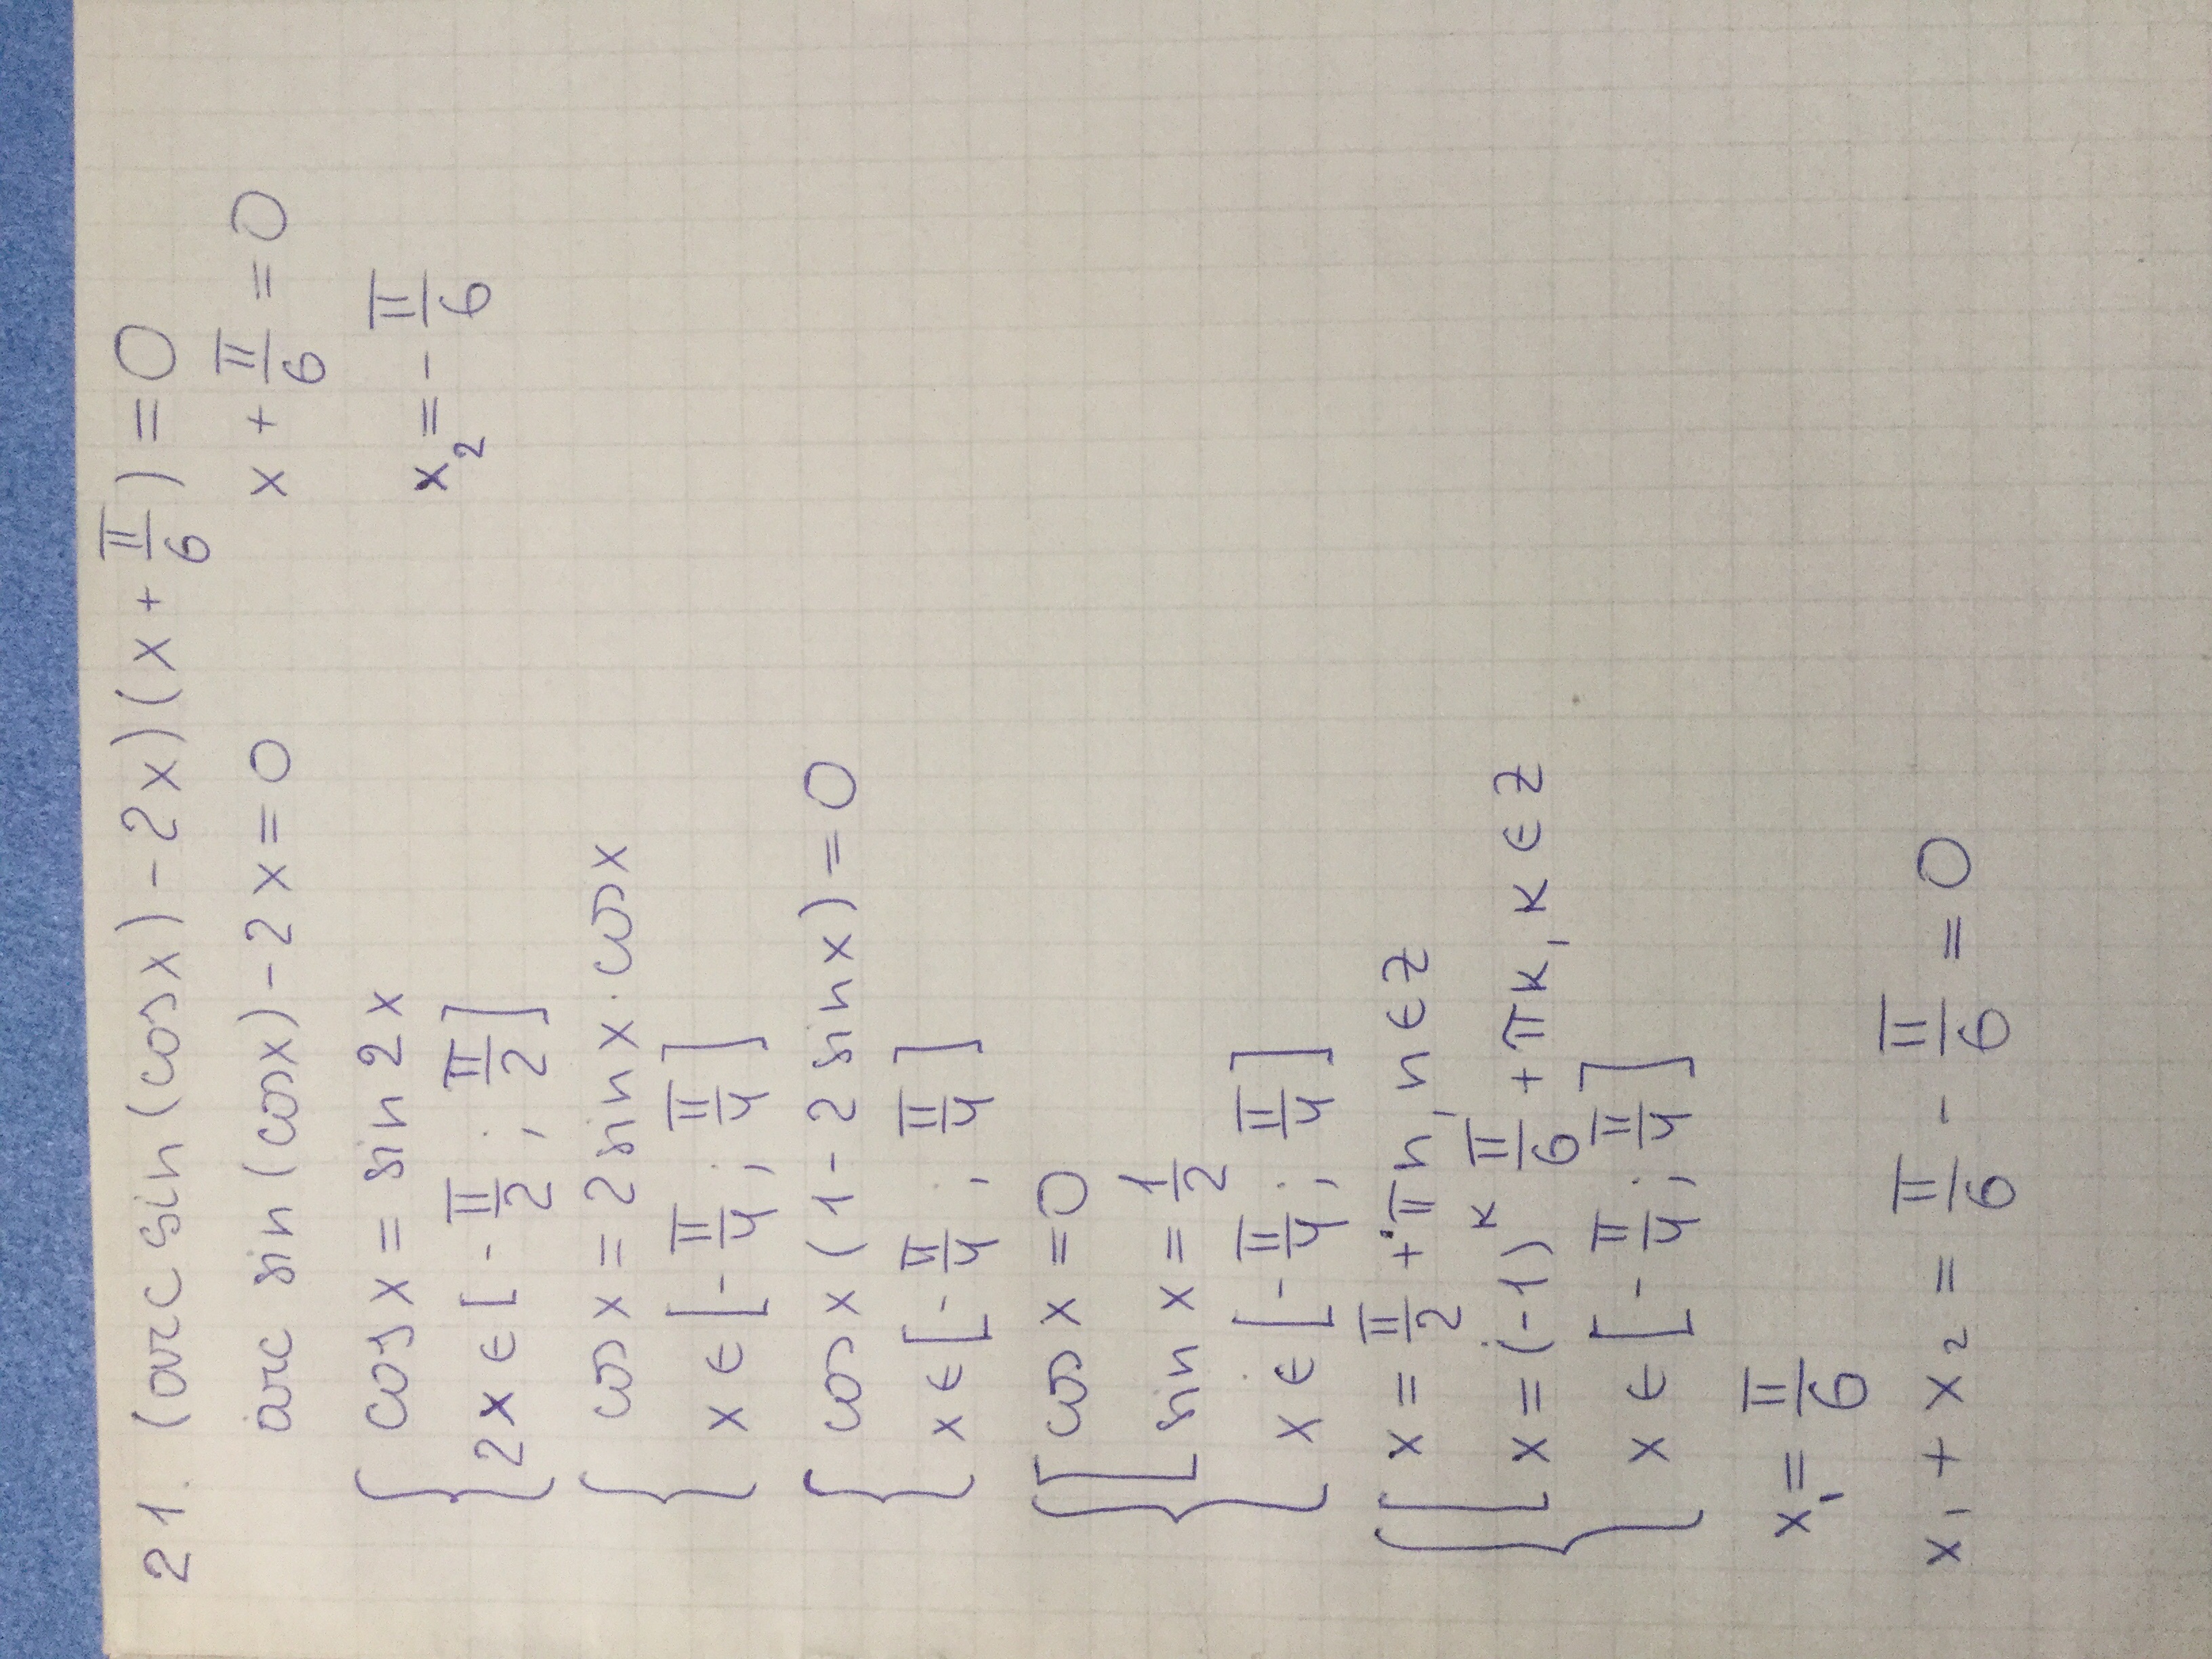 21. (arc sin (cos x) - 2x)(x + π/6) = 0
arc sin (cos x) - 2x = 0    x + π/6 = 0
{ cos x = sin 2x    x₂ = - π/6
2x ∈ [- π/2 ; π/2]
{ cos x = 2 sin x · cos x
x ∈ [- π/4 ; π/4]
{ cos x (1 - 2 sin x) = 0
x ∈ [- π/4 ; π/4]
{ [ cos x = 0
sin x = 1/2
x ∈ [- π/4 ; π/4]
{ [ x = π/2 + πn, n ∈ z
x = (-1)ᵏ π/6 + πk, k ∈ z
x ∈ [- π/4 ; π/4]
x₁ = π/6
x₁ + x₂ = π/6 - π/6 = 0